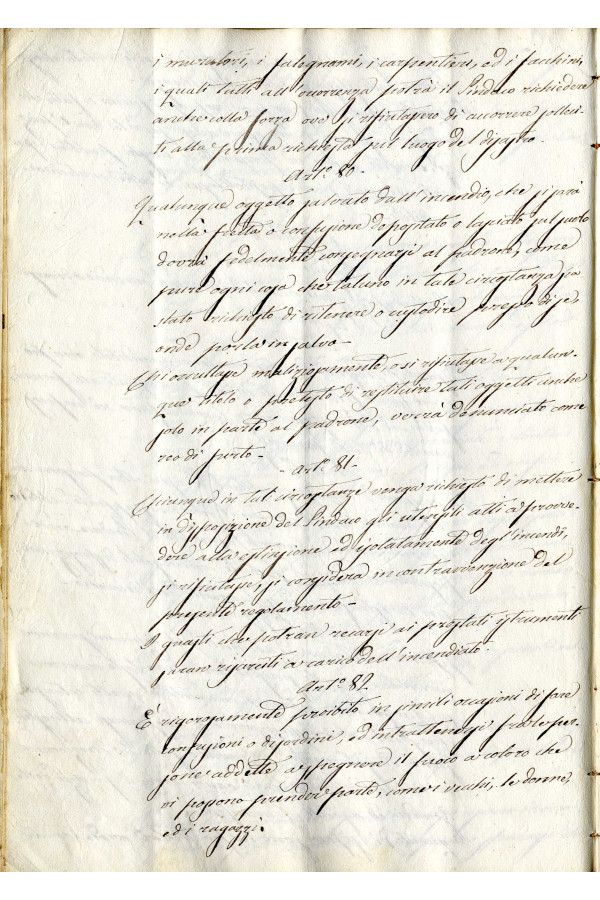 i muratori, i falegnami, i carpentieri, ed i facchini,
i quali tutti all'occorrenza potrà il Sindaco richiedere
anche colla forza ove si rifiutassero di accorrere solleci-
ti alla prima richiesta sul luogo del disastro.
Art.º 80.
Qualunque oggetto salvato dall'incendio, che si sarà
nella fretta o confusione depositato o lasciato sul suolo
dovrà fedelmente consegnarsi al padrone, come
pure ogni cosa che taluno in tale circostanza sia
stato richiesto di ritenere o custodire presso di se,
onde porla in salvo.
Chi occultasse maliziosamente, o si rifiutasse a qualun-
que titolo o pretesto di restituire tali oggetti anche
solo in parte al padrone, verrà denunciato come
reo di furto.
Art.º 81.
Chiunque in tali circostanze venga richiesto di mettere
in disposizione del Sindaco gli utensili atti a provve-
dere alla estinzione ed isolatamento degl'incendi,
si rifiutasse, si considera in contravvenzione del
presente regolamento.
I guasti che potran recarsi ai prestati istrumenti
saran risarciti a carico dell'incendiato.
Art.º 82
È rigorosamente proibito in simili occasioni di fare
confusioni o disordini, ed intrattenersi fra le per-
sone addette a spegnere il fuoco a coloro che
vi possono prender parte, come i vecchi, le donne,
ed i ragazzi.